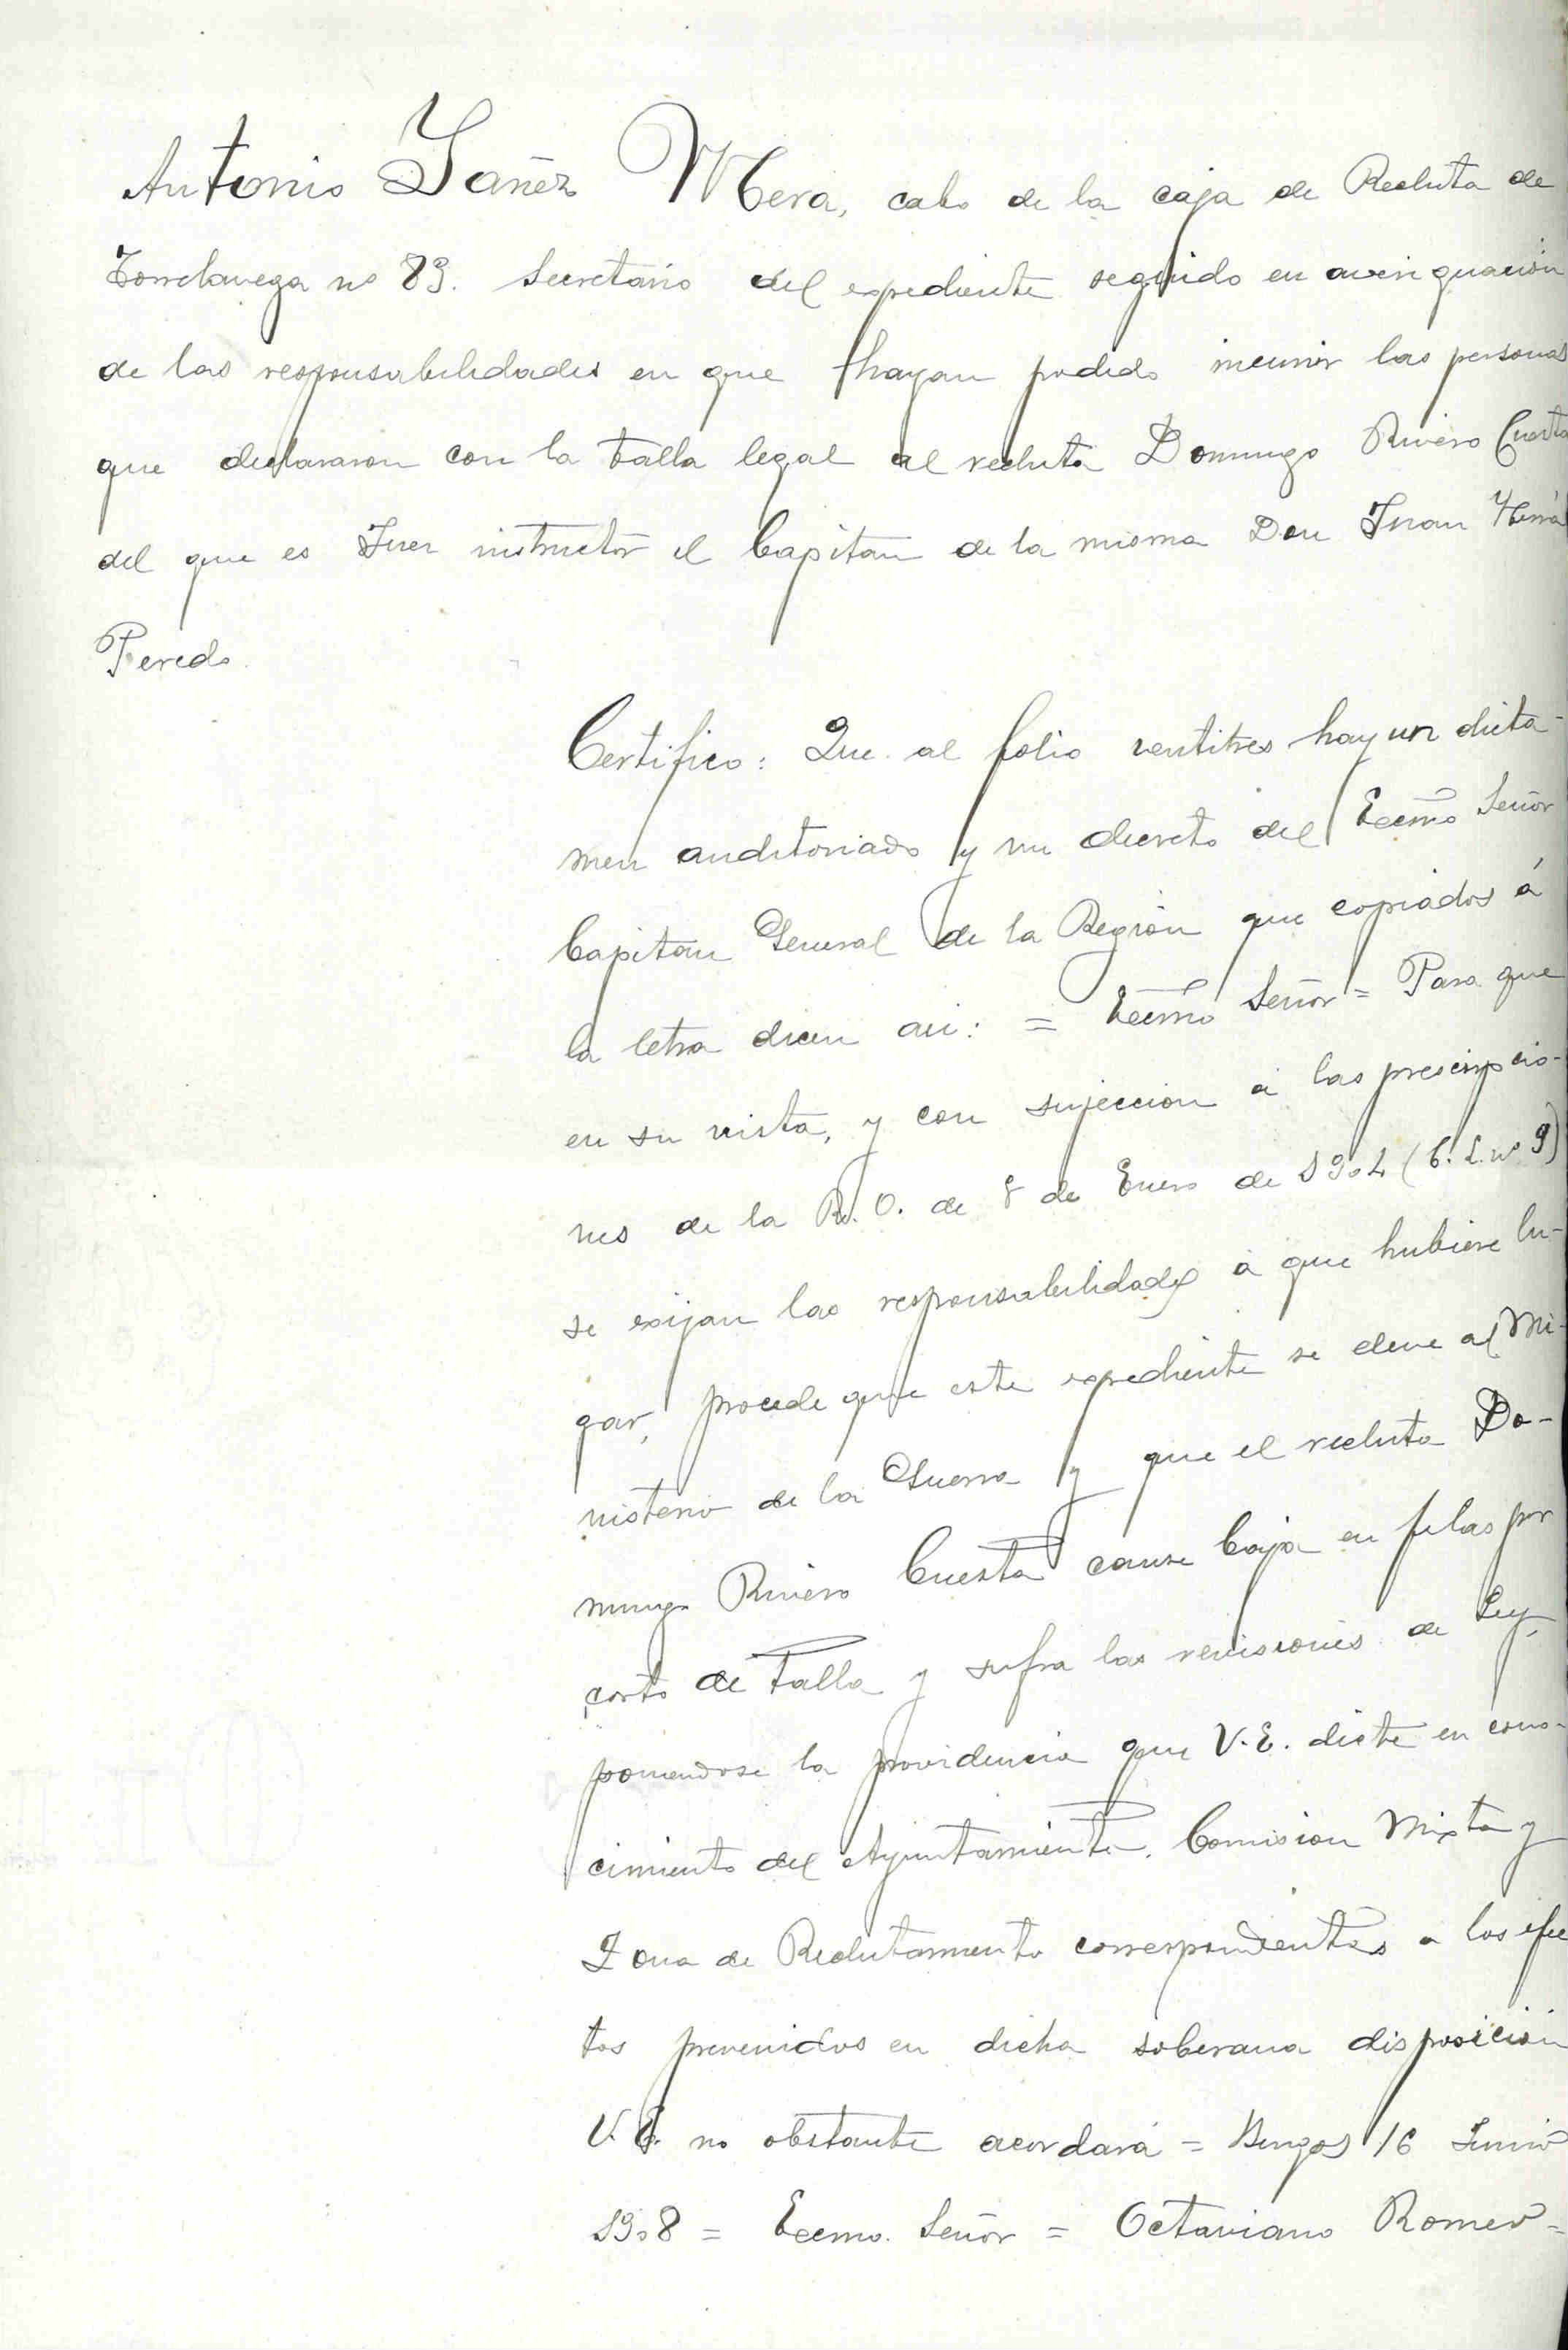 Antonio Yañez Mera, cabo de la caja de Recluta de
Torrelavega nº 89. Secretario del expediente seguido en averiguación
de las responsabilidades en que hayan podido incurrir las personas
que declararon con la talla legal al recluta Domingo Rivero Cuesta
del que es Juez instructor el Capitan de la misma Don Juan
Peredo.
Certifico: Que al folio ventitres hay un dicta-
men auditoriado y un decreto del Ecxmo Señor
Capitan General de la Región que copiados á
la letra dicen asi: = Ecxmo Señor = Para que
en su vista, y con sujeccion á las prescripcio-
nes de la R. O. de 8 de Enero de 1904 (C. L. nº 9)
se exijan las responsabilidades á que hubiere lu-
gar, procede que este expediente se eleve al Mi-
nisterio de la Guerra y que el recluta Do-
mingo Rivero Cuesta cause baja en filas por
corto de talla y sufra las revisiones de Ley,
poniendose la providencia que V.E. dicte en cono-
cimiento del Ayuntamiento, Comision Mixta y
Zona de Reclutamiento correspondientes a los efec
tos prevenidos en dicha soberana disposición
V. E. no obstante acordará = Burgos 16 Junio
1908 = Ecxmo. Señor = Octaviano Romeo =